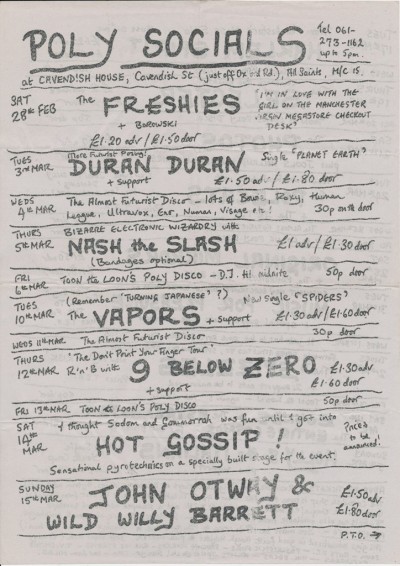 POLY SOCIALS
Tel 061-
273-1162
up to 5pm.
at CAVENDISH HOUSE, Cavendish St (just off Ox rd Rd.), All Saints, M/c 15.
SAT
28th FEB
The FRESHIES
+ BOROWSKI
£1.20 adv / £1.50 door
'I'M IN LOVE WITH THE
GIRL ON THE MANCHESTER
VIRGIN MEGASTORE CHECKOUT
DESK'
TUES
3rd MAR
(More Futurist Posing!)
DURAN DURAN
+ support
Single 'PLANET EARTH'
£1.50 adv / £1.80 door
WEDS
4th MAR
The Almost Futurist Disco - lots of Bowie, Roxy, Human
League, Ultravox, Eno, Numan, Visage etc!
30p on the door
THURS
5th MAR
BIZARRE ELECTRONIC WIZARDRY with
NASH the SLASH
(Bandages optional)
£1 adv / £1.30 door
FRI
6th MAR
TOON the LOON'S POLY DISCO - D.J. till midnite
50p door
TUES
10th MAR
(Remember 'TURNING JAPANESE'?)
New Single 'SPIDERS'
The VAPORS + support
£1.30 adv / £1.60 door
WEDS 11th MAR The Almost Futurist Disco
30p door
THURS
12th MAR
'The Don't Point Your Finger Tour'
R'n'B with 9 BELOW ZERO
+ support
£1.30 adv
£1.60 door
FRI 13th MAR TOON the LOON'S POLY DISCO
50p door
SAT
14th
MAR
I thought Sodom and Gommorrah was fun until I got into
HOT GOSSIP!
Sensational pyrotechnics on a specially built stage for the event.
Prices
to be
announced!
SUNDAY
15th MAR
JOHN OTWAY &
WILD WILLY BARRETT
£1.50 adv
£1.80 door
P.T.O. →